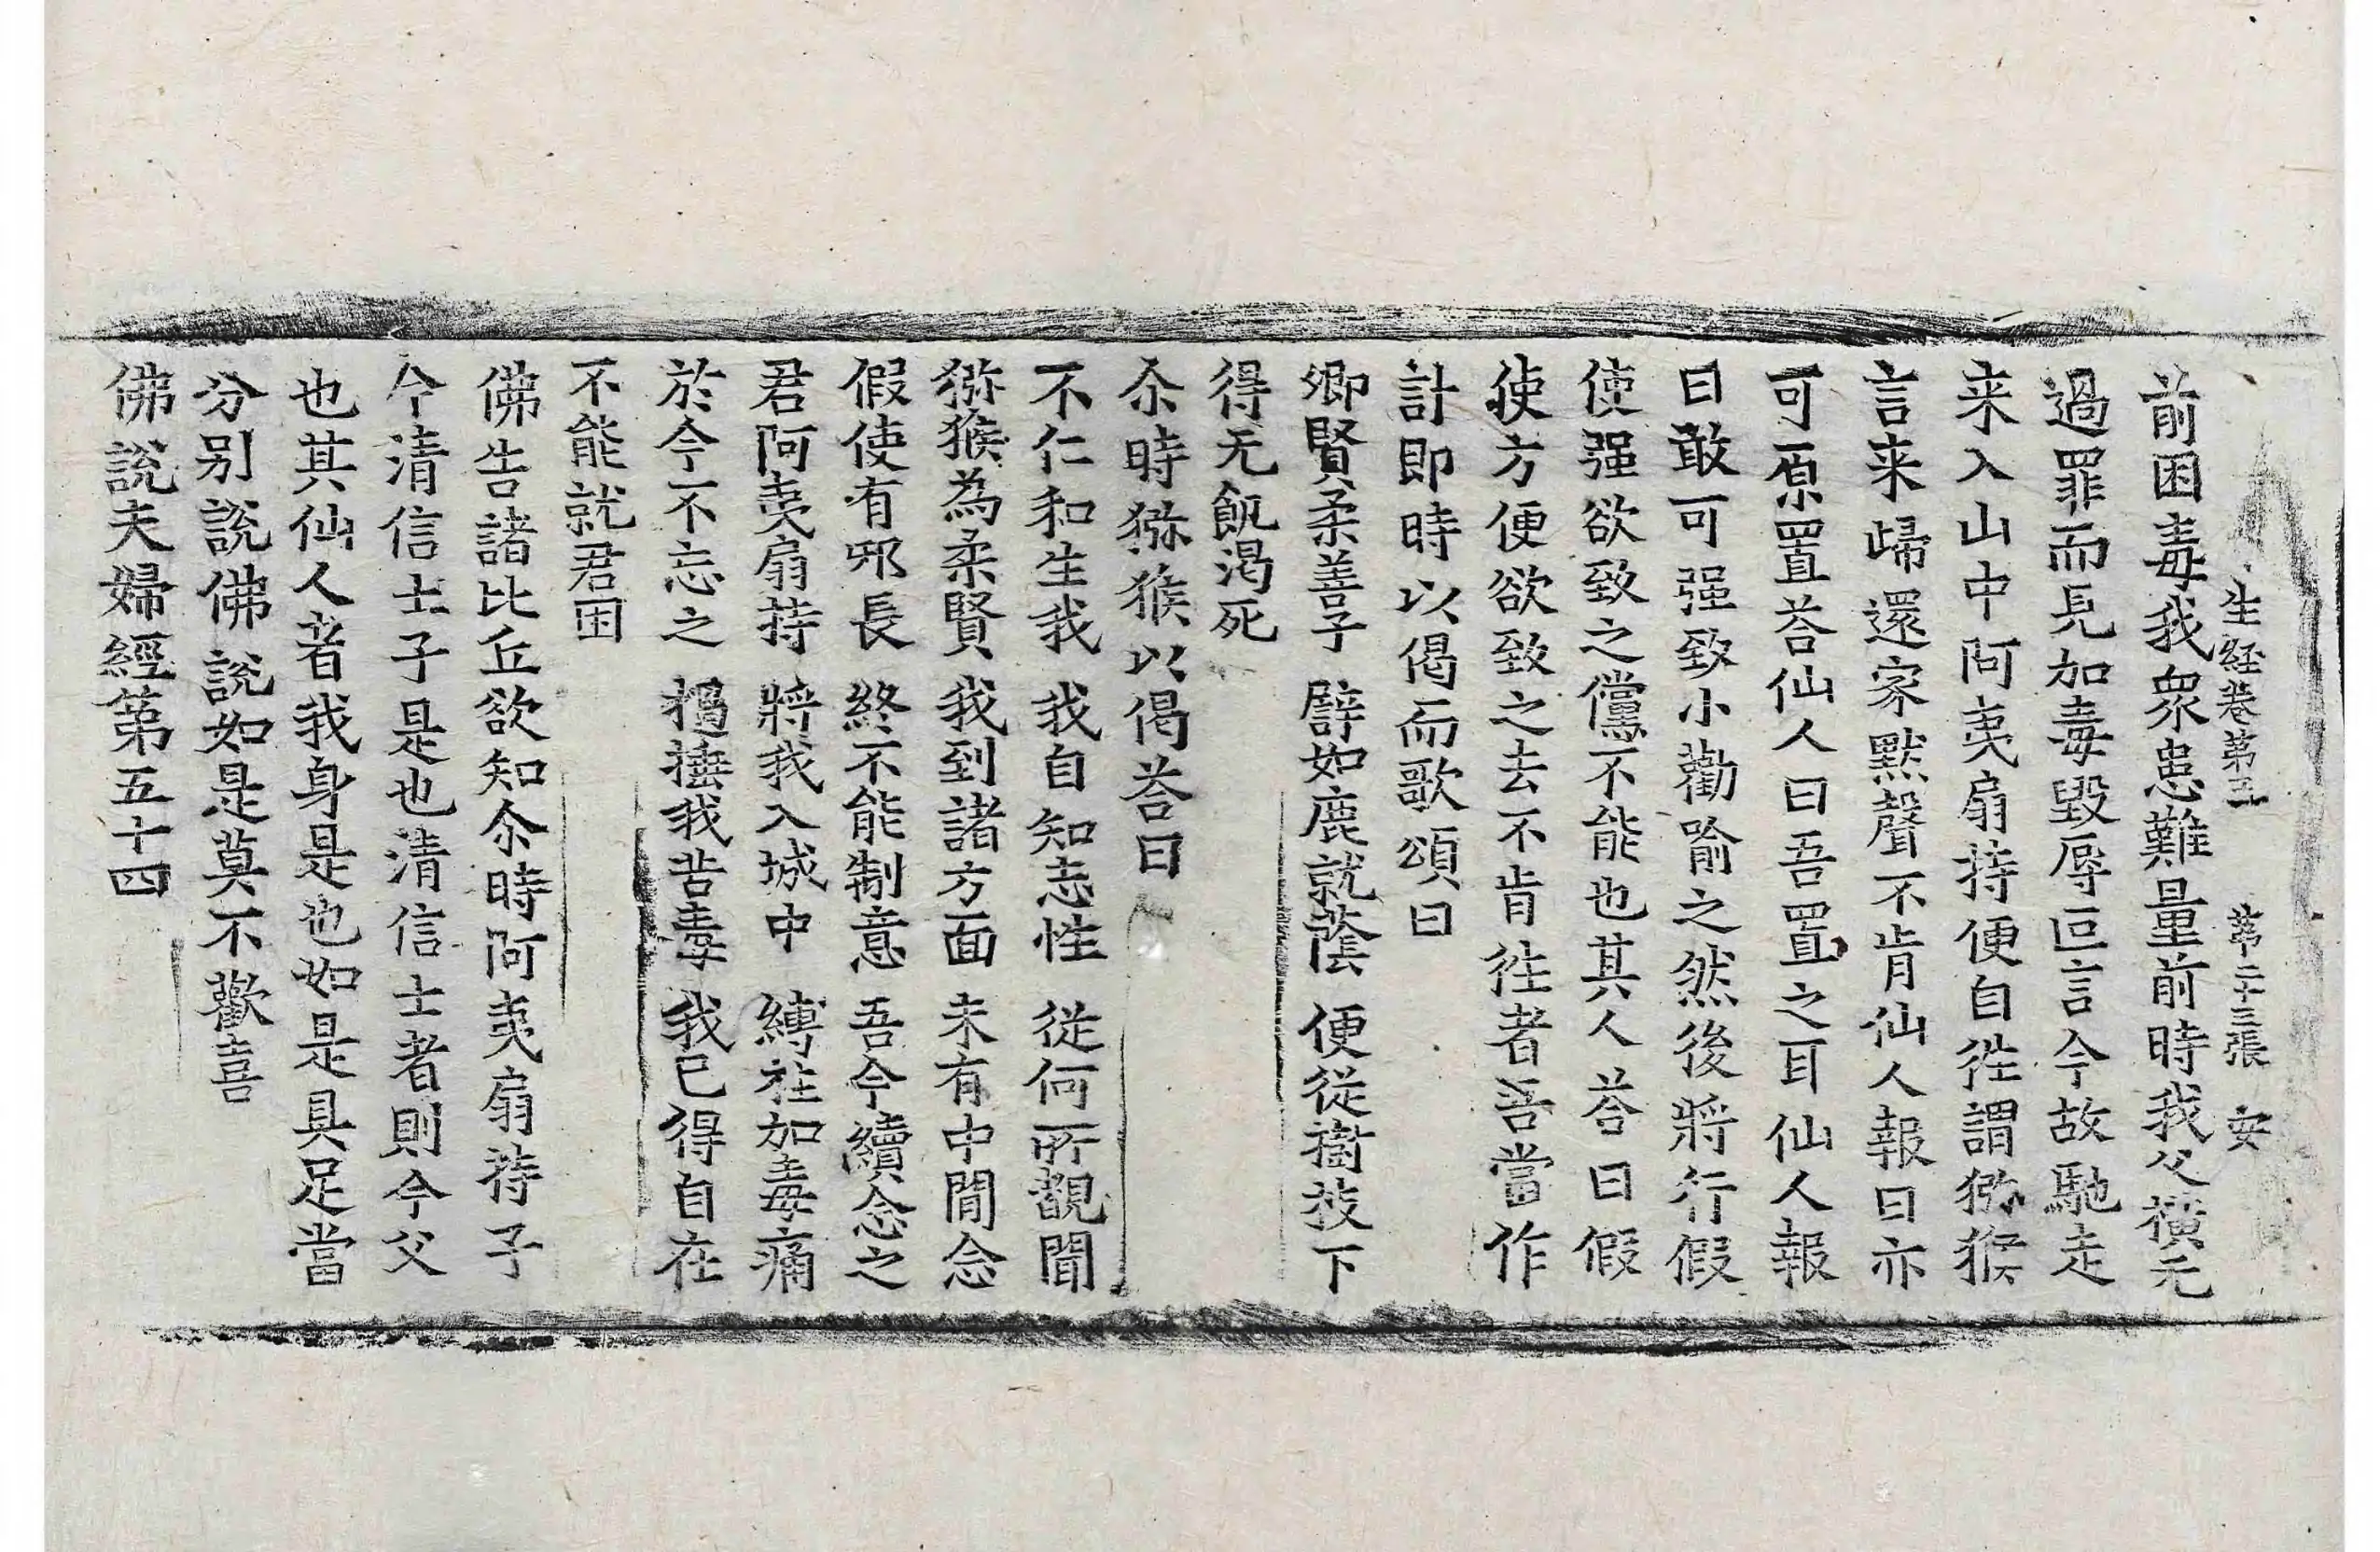 生経卷第五 第二十三張 安
前困毒我衆患難量前時我父横无
過罪而見加毒毀辱叵言今故馳走
来入山中阿夷扇持便自往謂猕猴
言来歸還家黙聲不肯仙人報曰亦
可原置荅仙人曰吾置之耳仙人報
曰敢可强致小勸喻之然後將行假
使强欲致之儻不能也其人荅曰假
使方便欲致之去不肯往者吾當作
計即時以偈而歌頌曰
卿賢柔善子 譬如鹿就蔭 便從樹枝下
得无飢渴死
尒時猕猴以偈荅曰
不仁和生我 我自知志性 從何所覩聞
猕猴為柔賢 我到諸方面 未有中間念
假使有邪長 終不能制意 吾今續念之
君阿夷扇持 將我入城中 縛柱加毒痛
於今不忘之 撾捶我苦毒 我已得自在
不能就君困
佛告諸比丘欲知尒時阿夷扇持子
今清信士子是也清信士者則今父
也其仙人者我身是也如是具足當
分别說佛說如是莫不歡喜
佛說夫婦經第五十四